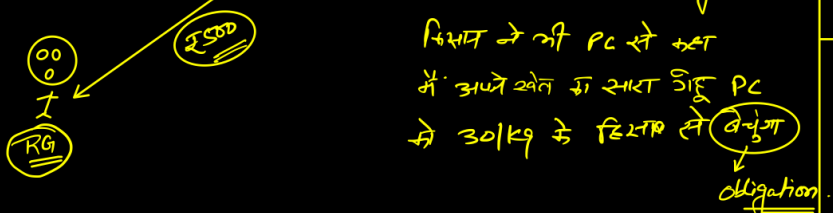 ₹500
RG
किसान ने भी PC से कहा
मैं अपने खेत का सारा गेहूं PC
को 30/kg के हिसाब से बेचूंगा
obligation.